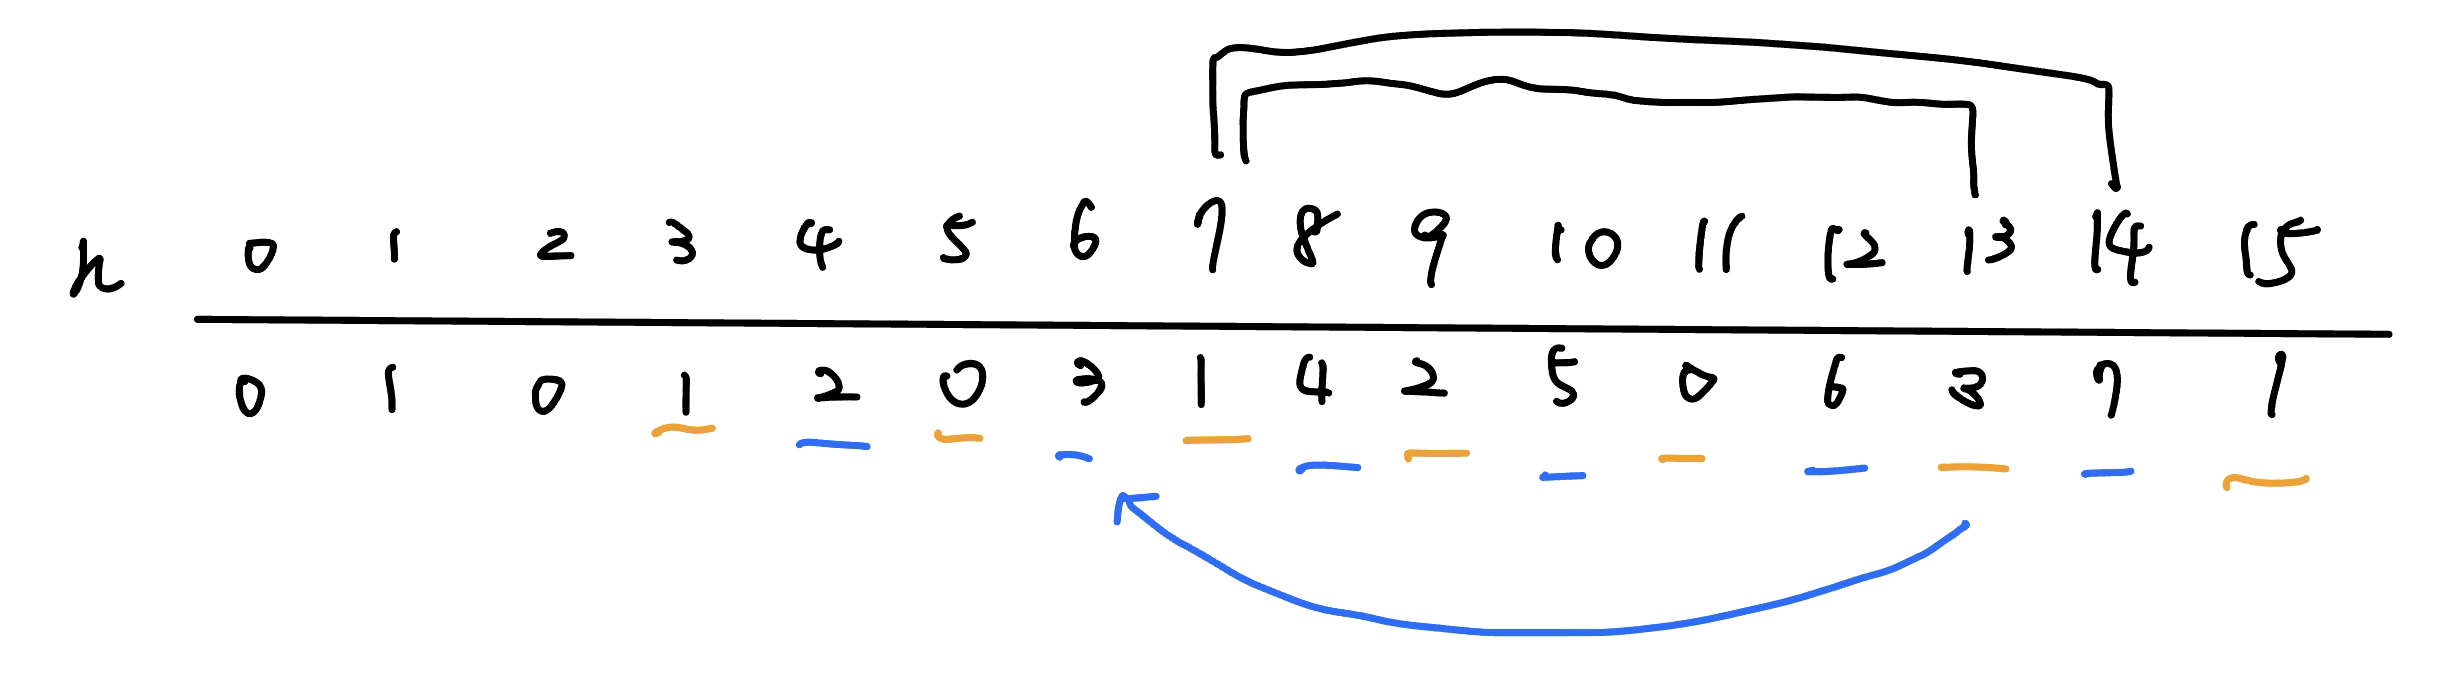 n 0 1 2 3 4 5 6 7 8 9 10 11 12 13 14 15
0 1 0 1 2 0 3 1 4 2 5 0 6 3 7 1